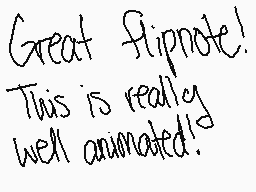 Great flipnote!
This is really
well animated!